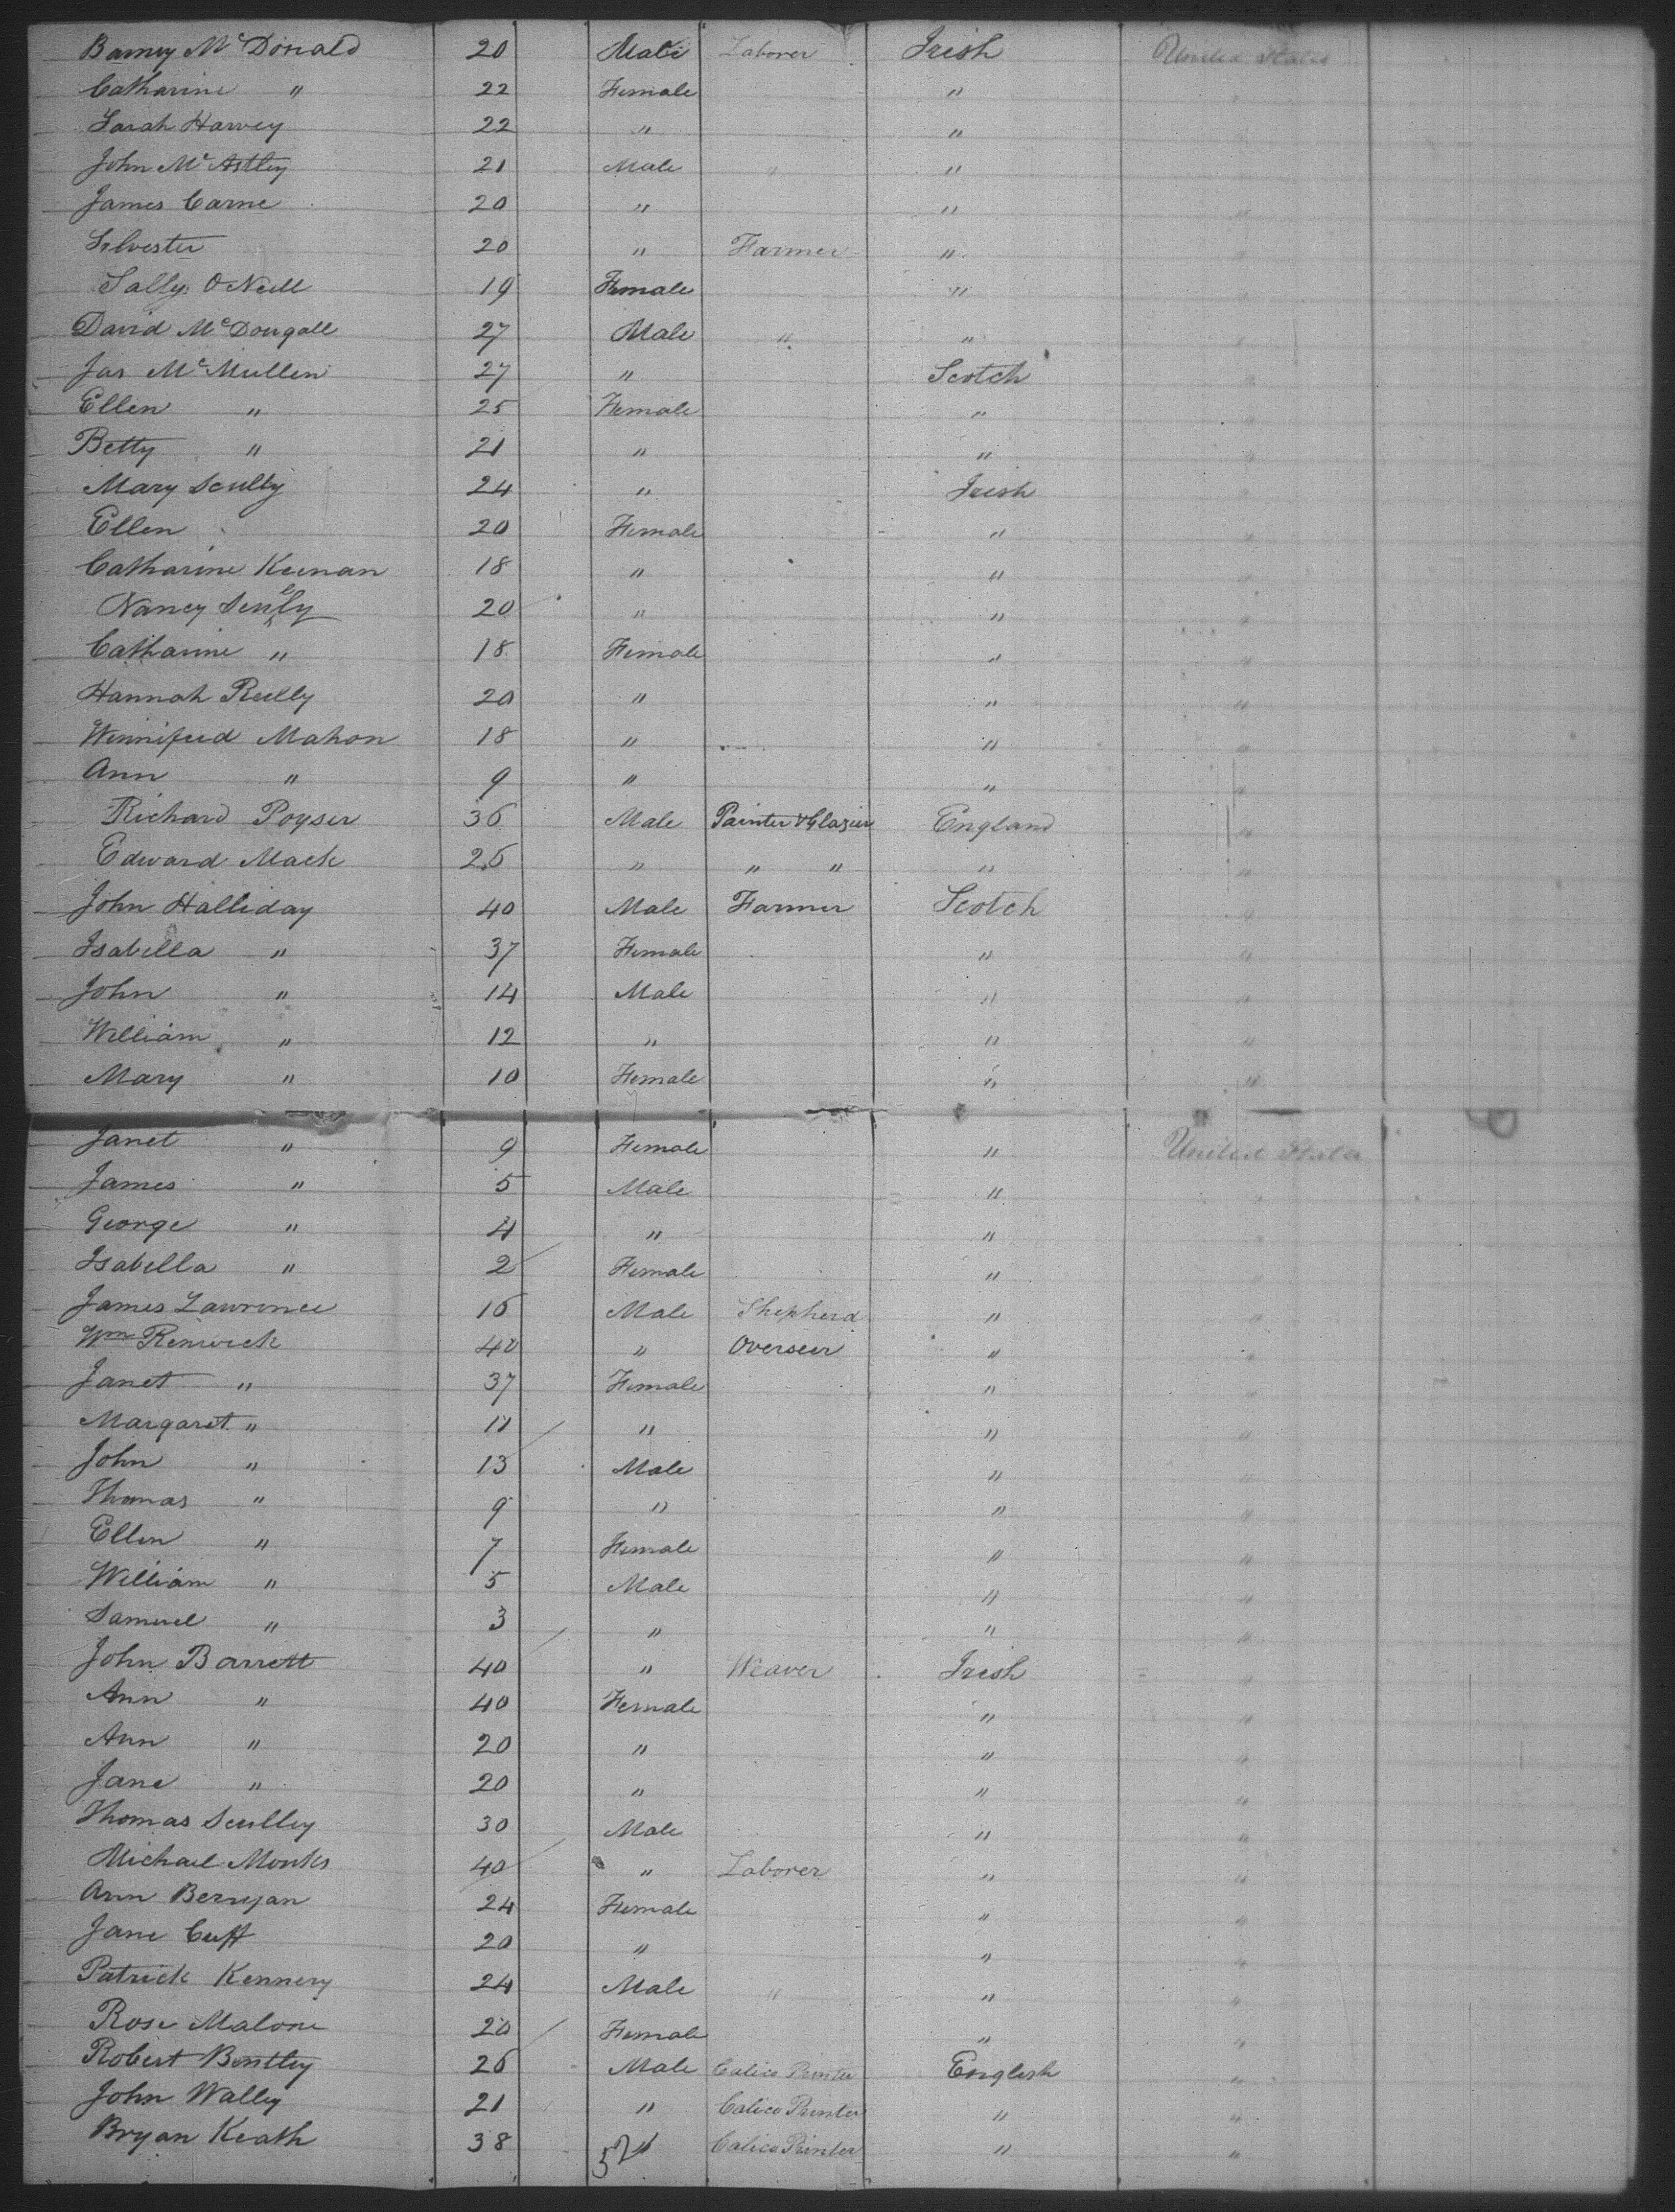 Barney McDonald 20 Male Laborer Irish United States
Catharine " 22 Female " "
Sarah Harvey 22 " "
John McAstley 21 Male " "
James Carne 20 " " "
Silvester 20 " Farmer " "
Sally O Neill 19 Female " "
David McDougall 27 Male " " "
Jas McMullen 27 " Scotch "
Ellen " 25 Female " "
Betty " 21 " " "
Mary Scully 24 " Irish "
Ellen 20 Female " "
Catharine Keenan 18 " " "
Nancy Scully 20 " " "
Catharine " 18 Female " "
Hannah Reilly 20 " " "
Winnifred Mahon 18 " " "
Ann " 9 " " "
Richard Poyser 36 Male Painter & Glazier England "
Edward Mack 26 " " " " "
John Halliday 40 Male Farmer Scotch "
Isabella " 37 Female " "
John " 14 Male " "
William " 12 " " "
Mary " 10 Female " "
Janet " 9 Female " United States
James " 5 Male " "
George " 4 " "
Isabella " 2 Female " "
James Lawrence 16 Male Shepherd " "
Wm Renwick 40 " Overseer " "
Janet " 37 Female " "
Margaret " 11 " " "
John " 13 Male " "
Thomas " 9 " " "
Ellen " 7 Female " "
William " 5 Male " "
Samuel " 3 " " "
John Barrett 40 " Weaver Irish "
Ann " 40 Female " "
Ann " 20 " " "
Jane " 20 " " "
Thomas Sculley 30 Male " "
Michael Monks 40 " Laborer " "
Ann Berryan 24 Female " "
Jane Cuff 20 " " "
Patrick Kennery 24 Male " " "
Rose Malone 20 Female " "
Robert Bentley 26 Male Calico Printer English "
John Walley 21 " Calico Printer " "
Bryan Keath 38 " Calico Printer " "
52